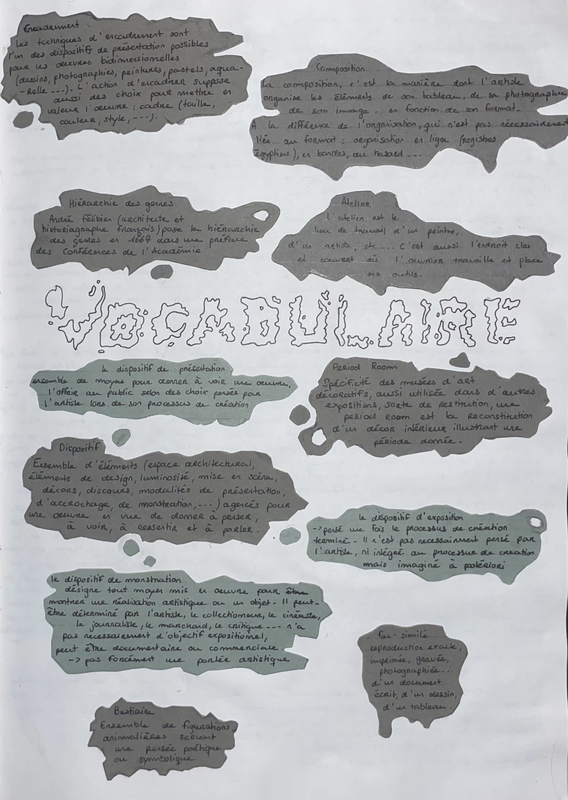 Encadrement
Les techniques d'encadrement sont
l'un des dispositifs de présentation possibles
pour les oeuvres bidimensionnelles
(dessins, photographies, peintures, pastels, aqua-
-relle ---). L'action d'encadrer suppose
aussi des choix pour mettre en
valeur l'oeuvre : cadre (taille,
couleur, style, ---).
Composition
La composition, c'est la manière dont l'artiste
organise les éléments de son tableau, de sa photographie
de son image, en fonction de son format.
A la différence de l'organisation, qui n'est pas nécessairement
liée au format : organisation en ligne (registres
égyptiens), en bandes, au hasard ---
Hiérarchie des genres
André Félibien (architecte et
historiographe français) pose la hiérarchie
des genres en 1667 dans une préface
des Conférences de l'Académie
Atelier
l'atelier est le
lieu de travail d'un peintre,
d'un artiste, etc... C'est aussi l'endroit clos
et couvert où l'ouvrier travaille et place
ses outils.
VOCABULAIRE
le dispositif de présentation
ensemble de moyens pour donner à voir une oeuvre,
l'offrir au public selon des choix pensés par
l'artiste lors de son processus de création
Period Room
Spécificité des musées d'art
décoratifs, aussi utilisée dans d'autres
expositions, sorte de restitution, une
period room est la reconstitution
d'un décor intérieur illustrant une
période donnée.
Dispositif
Ensemble d'éléments (espace architectural,
éléments de design, luminosité, mise en scène,
décors, discours, modalités de présentation,
d'accrochage, de monstration, ---) agencés pour
une oeuvre en vue de donner à penser,
à voir, à ressentir et à parler.
le dispositif d'exposition
-> pensé une fois le processus de création
terminé - Il n'est pas nécessairement pensé par
l'artiste, ni intégré au processus de création
mais imaginé à postériori
le dispositif de monstration
désigne tout moyen mis en oeuvre pour
montrer une réalisation artistique ou un objet - Il peut-
être déterminé par l'artiste, le collectionneur, le cinéaste,
le journaliste, le marchand, le critique --- n'a
pas nécessairement d'objectif expositionnel,
peut être documentaire ou commerciale
-> pas forcément une portée artistique
Fac-similé
reproduction exacte,
imprimée, gravée,
photographiée...
d'un document
écrit, d'un dessin,
d'un tableau.
Bestiaire
Ensemble de figurations
animalières servant
une pensée poétique
ou symbolique